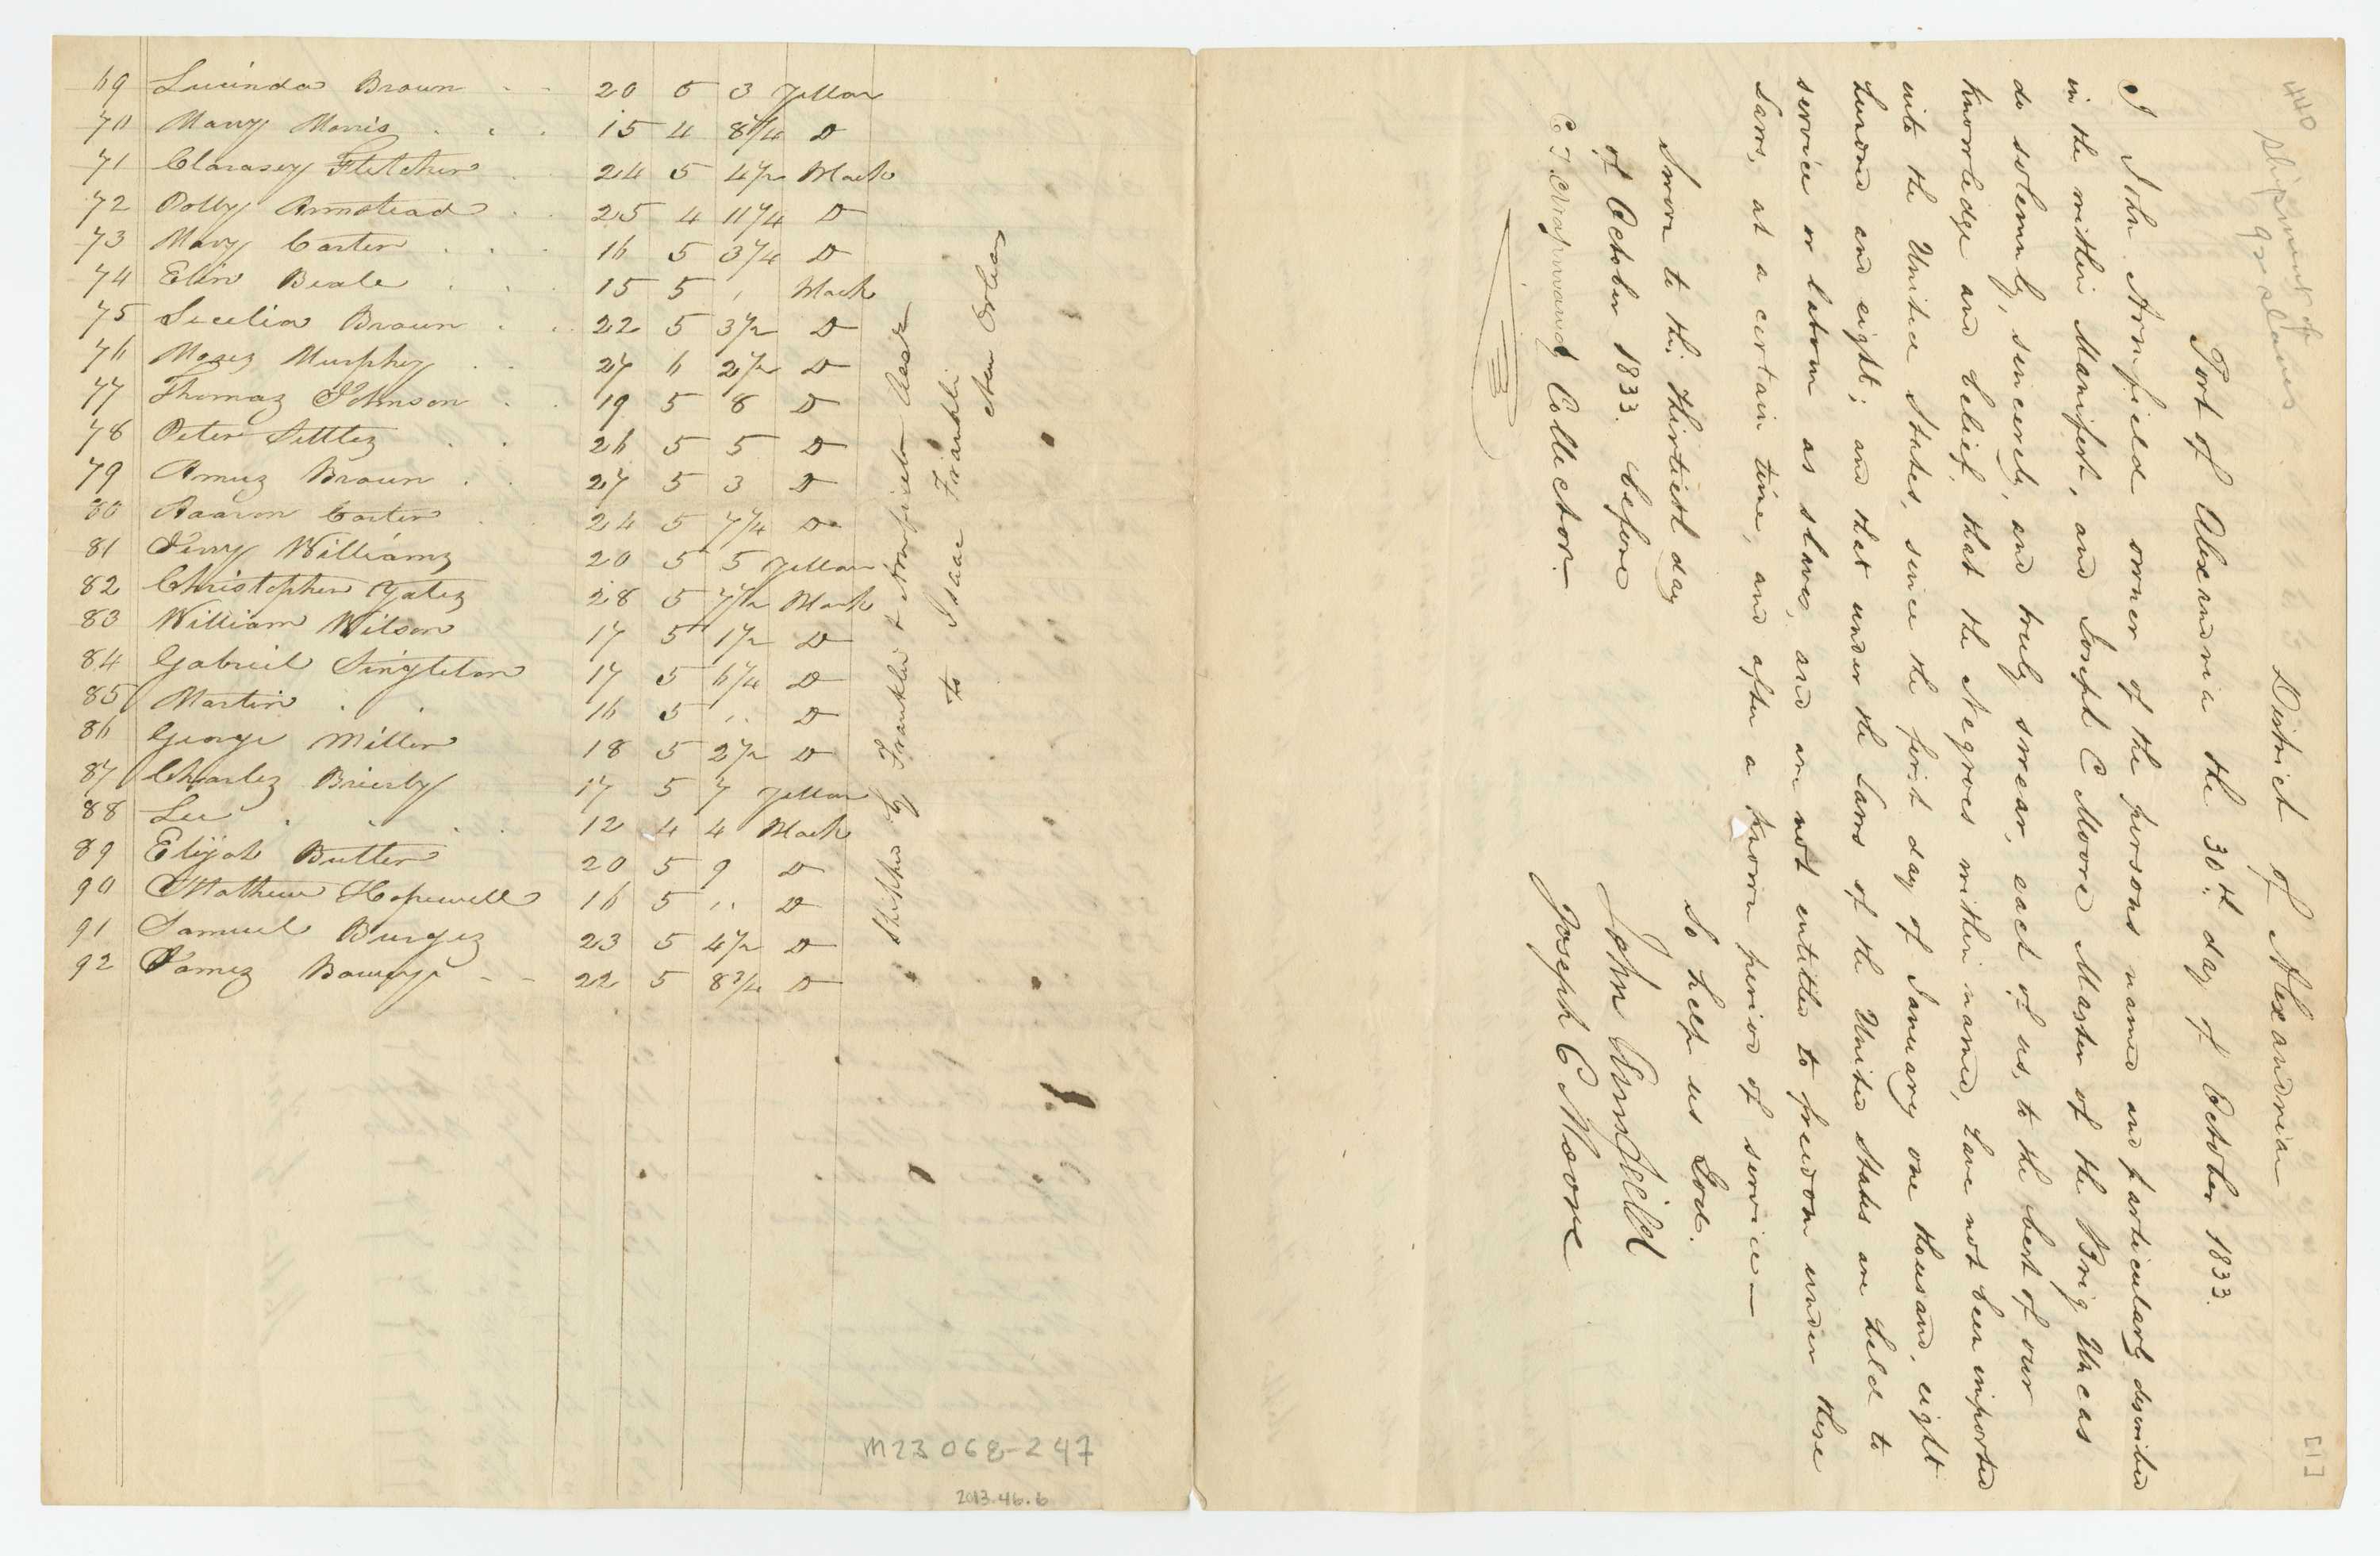 69 Lucinda Brown - - 20 5 3 Yellow
70 Mary Morris . . . 15 4 8 1/4 D
71 Clarasey Fletcher . 24 5 4 1/2 Black
72 Dolly Armstead . . 25 4 11 1/4 D
73 Mary Carter . . . 16 5 3 1/4 D
74 Elen Beale . . . 15 5 , Black
75 Secelia Brown . . 22 5 3 1/2 D
76 Moses Murphy . . 27 6 2 1/2 D
77 Thomas Johnson . . 19 5 8 D
78 Peter Settles . . 26 5 5 D
79 Amus Brown . . 27 5 3 D
80 Aaaron Carter . . 24 5 7 1/4 D
81 Perry Williams 20 5 5 Yellow
82 Christopher Yates 28 5 7 1/2 Black
83 William Wilson 17 5 1 1/2 D
84 Gabriel Singleton 17 5 6 1/4 D
85 Martin . . 16 5 ,, D
86 George Miller 18 5 2 1/2 D
87 Charles Brierly 17 5 7 Yellow
88 Lee . . . 12 4 4 Black
89 Elijah Butler 20 5 9 D
90 Mathew Hopewell 16 5 ,, D
91 Samuel Burges 23 5 4 1/2 D
92 James Bowery - - 22 5 8 3/4 D
Shipper by Franklin & Armfield Alexa
to Isaac Franklin
New Orleans
M23068-247
2013.46.6
440
shipment of
92 slaves
[1]
District of Alexandria
Port of Alexandria the 30th day of October 1833.
I John Armfield owner of the persons named and particularly described
in the within Manifest, and Joseph C Moore Master of the Brig Uncas
do solemnly, sincerely, and truly swear, each of us, to the best of our
knowledge and belief, that the Negroes within named, have not been imported
into the United States, since the first day of January one thousand, eight
hundred and eight; and that under the Laws of the United States are held to
service or labour as slaves, and are not entitled to freedom under these
Laws, at a certain time, and after a known period of service—
So help us God.
Sworn to this thirtieth day
of October 1833. before
Collector.
John Armfield
Joseph C Moore